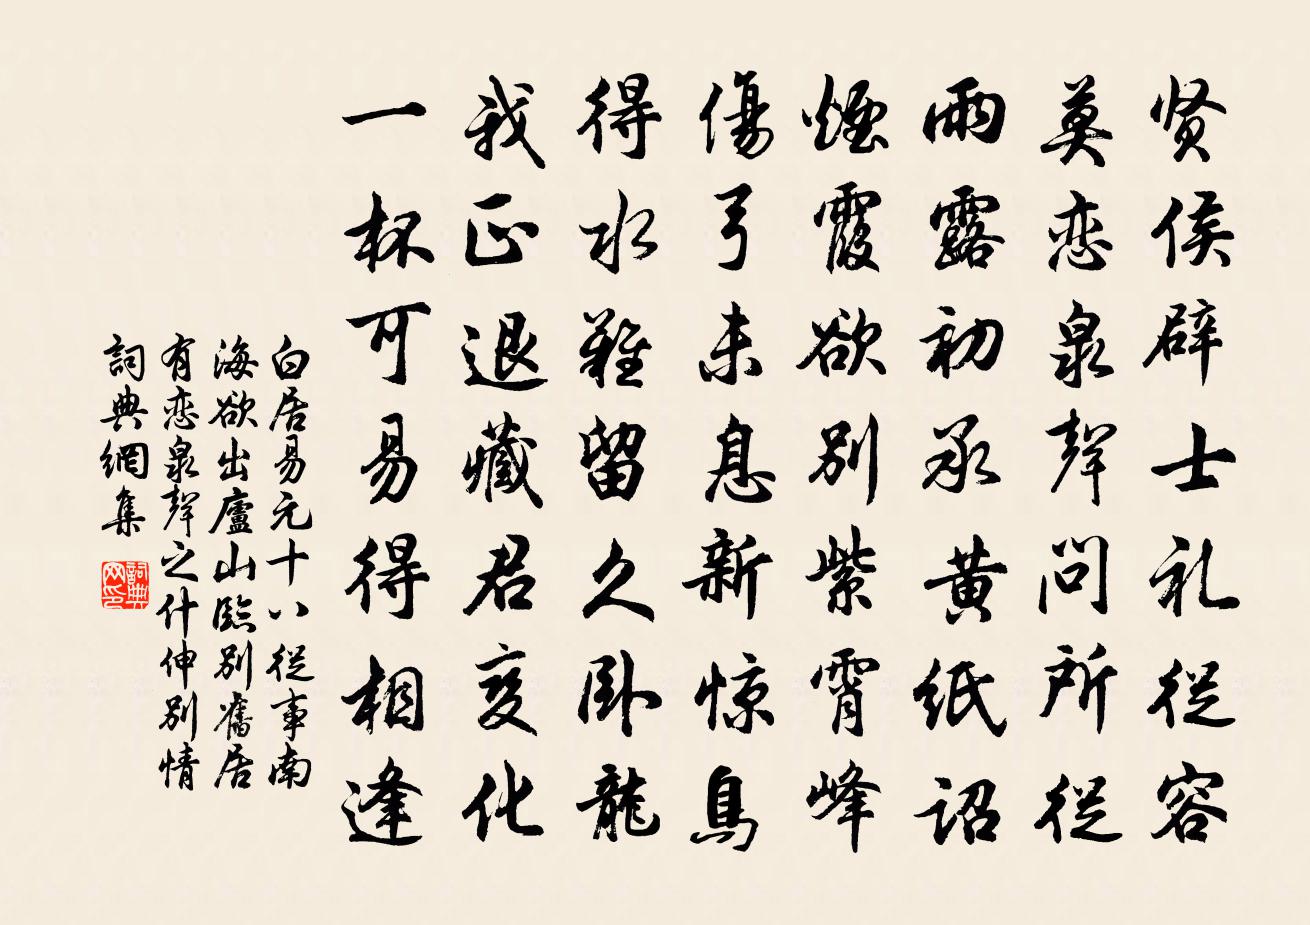 贤侯辟士礼從容
莫恋泉聲问所從
雨露初承黄纸诏
煙霞欲别紫霄峰
傷弓未息新惊鳥
得水難留久卧龍
我正退藏君变化
一杯可易得相逢
白居易元十八從事南
海欲出廬山臨别舊居
有恋泉聲之什伸别情
詞典網集
詞典
网印